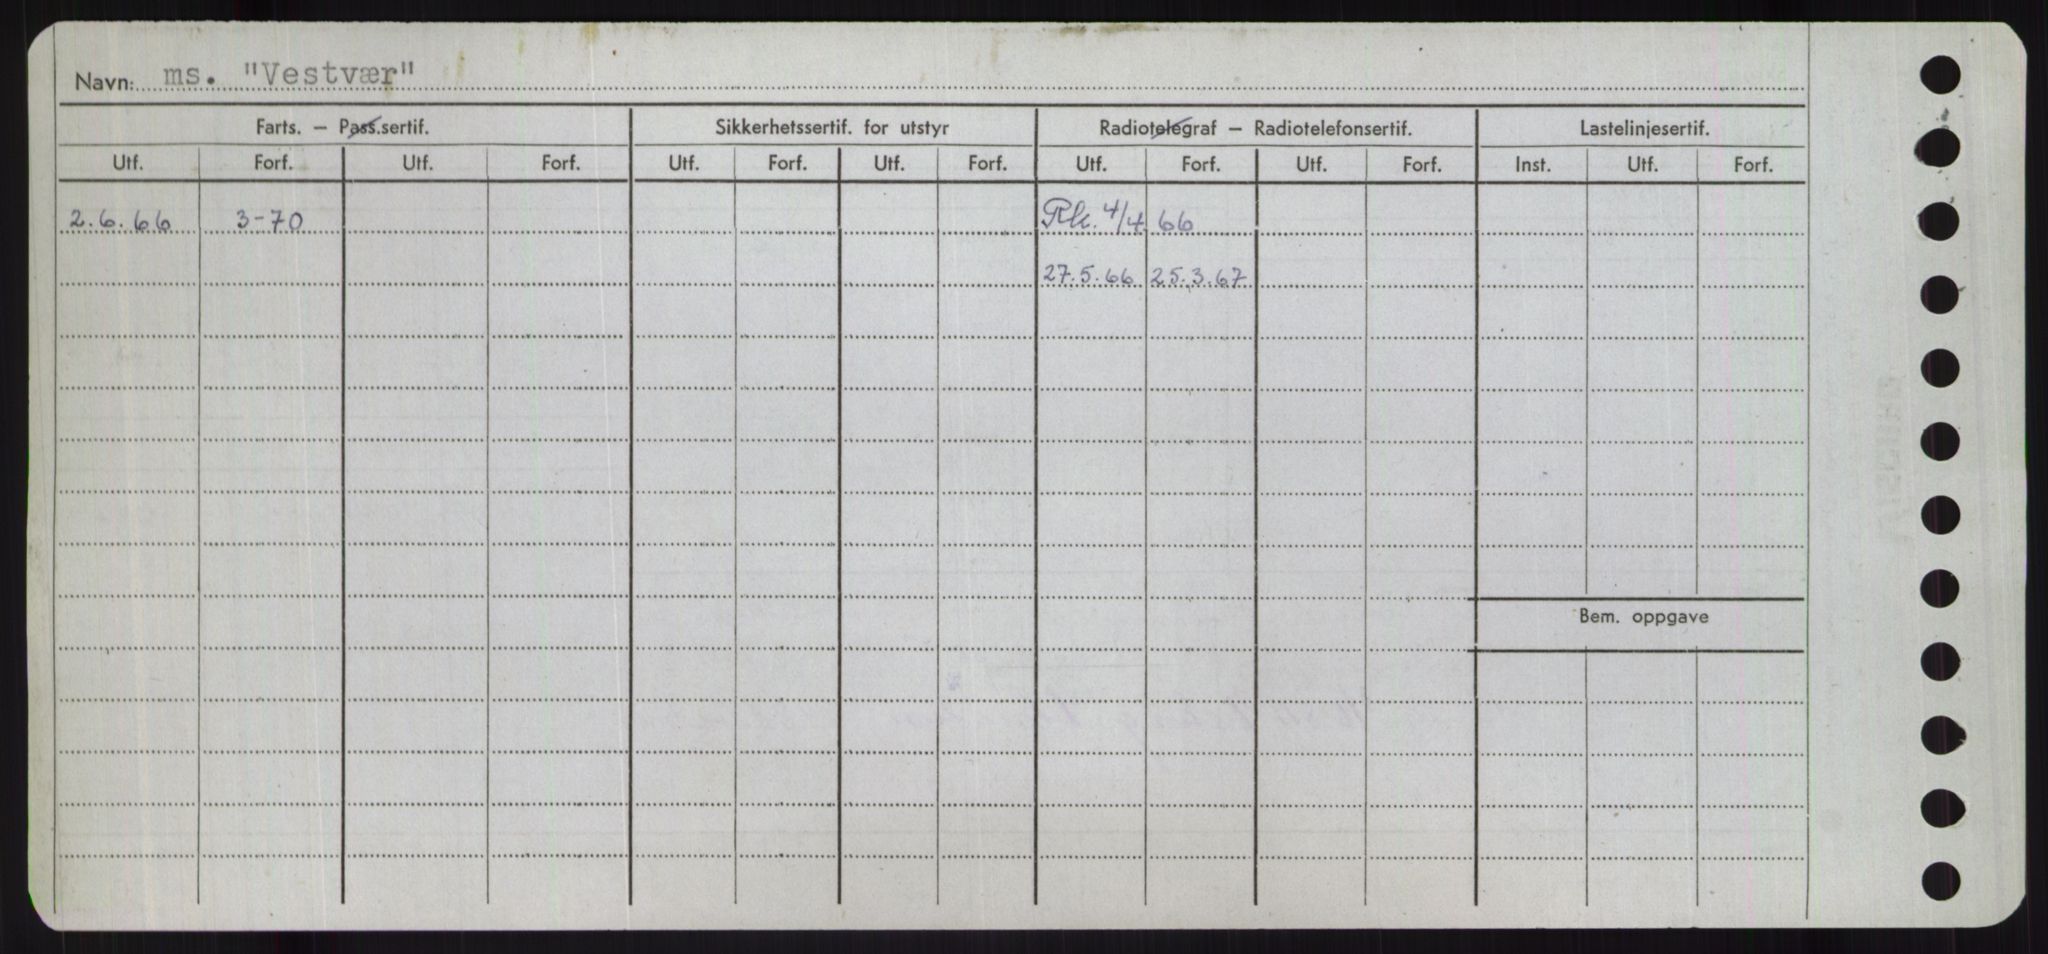 Navn: ms. "Vestvær"
Farts. – Pass.sertif. Sikkerhetssertif. for utstyr Radiotelegraf – Radiotelefonsertif. Lastelinjesertif.
Utf. Forf. Utf. Forf. Utf. Forf. Utf. Forf. Utf. Forf. Utf. Forf. Inst. Utf. Forf.
2.6.66 3-70 Rk. 4/4 66
27.5.66 25.3.67
Bem. oppgave